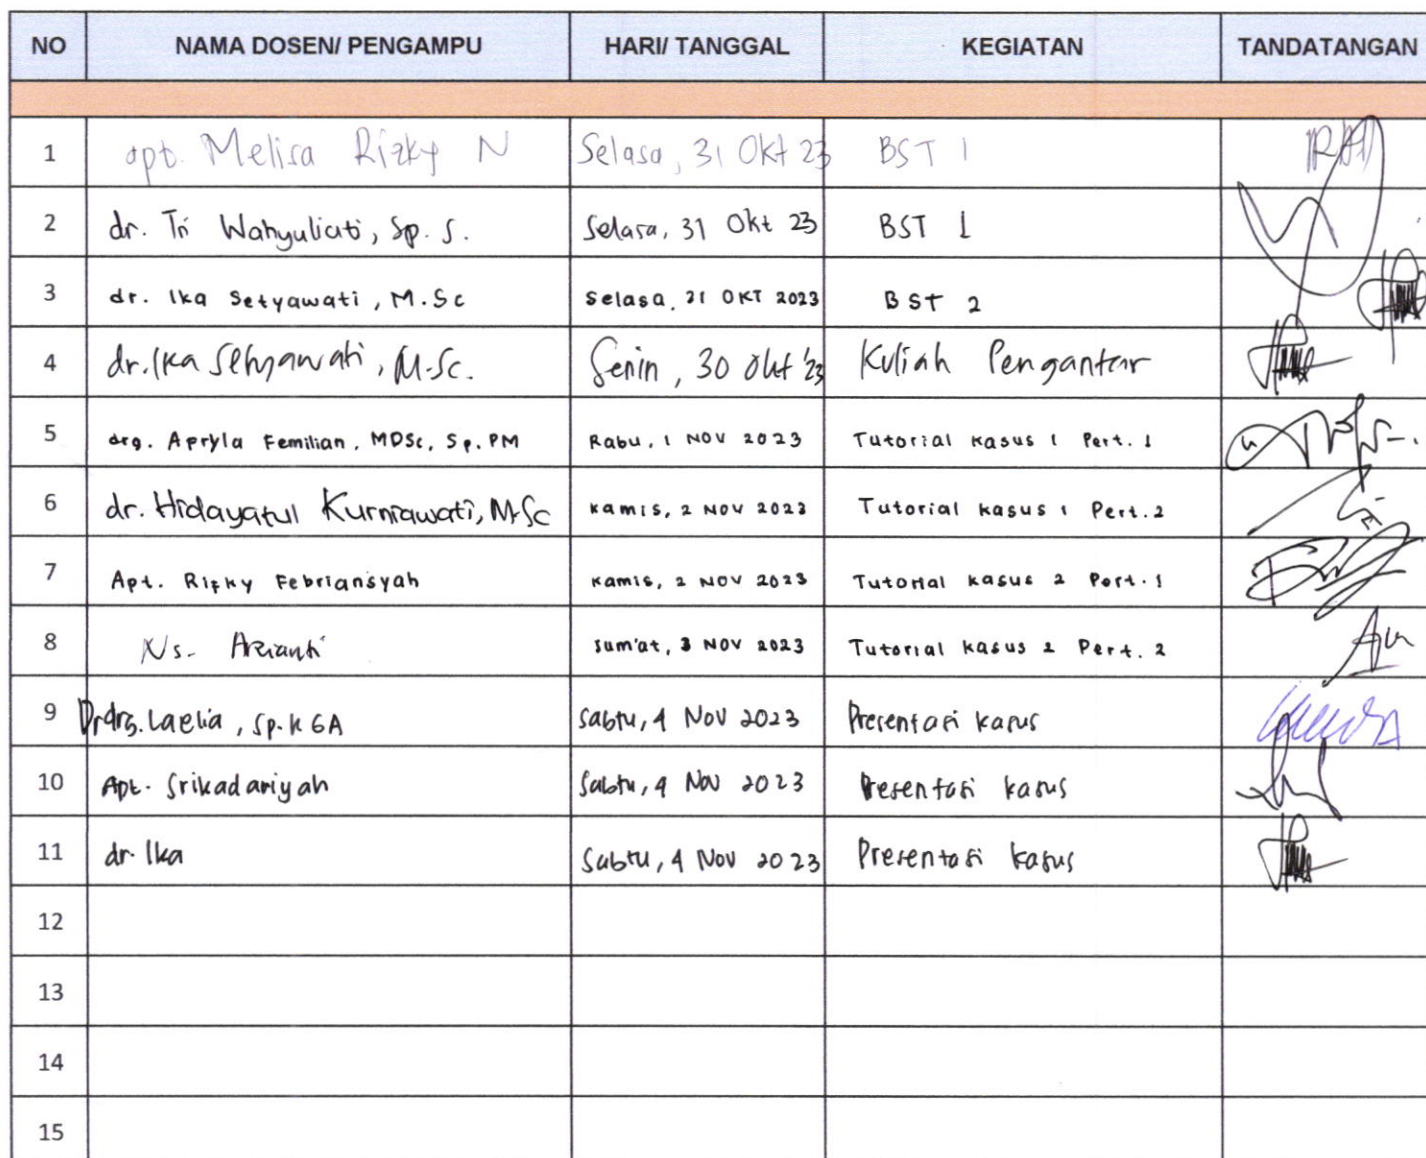 NO NAMA DOSEN/ PENGAMPU HARI/ TANGGAL KEGIATAN TANDATANGAN
1 apt. Melisa Rizky N Selasa, 31 Okt 23 BST 1
2 dr. Tri Wahyuliati, Sp. S. Selasa, 31 Okt 23 BST 1
3 dr. Ika Setyawati, M.Sc Selasa, 31 OKT 2023 BST 2
4 dr. Ika Setyawati, M.Sc. Senin, 30 Okt '23 Kuliah Pengantar
5 drg. Apryla Femilian, MDSc, Sp.PM Rabu, 1 NOV 2023 Tutorial kasus 1 Pert. 1
6 dr. Hidayatul Kurniawati, M.Sc Kamis, 2 NOV 2023 Tutorial kasus 1 Pert. 2
7 Apt. Rifky Febriansyah Kamis, 2 NOV 2023 Tutorial kasus 2 Pert. 1
8 Ns. Arianti Jum'at, 3 NOV 2023 Tutorial kasus 2 Pert. 2
9 Dr.drg. Laelia, Sp.KGA Sabtu, 4 Nov 2023 Presentasi kasus
10 Apt. Srikadariyah Sabtu, 4 Nov 2023 Presentasi kasus
11 dr. Ika Sabtu, 4 Nov 2023 Presentasi kasus
12
13
14
15